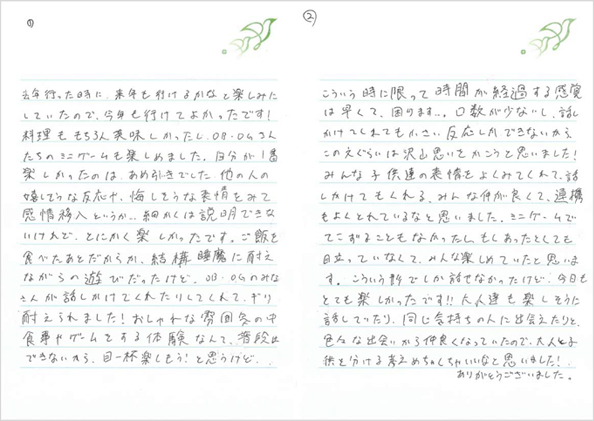 ①
去年行った時に、来年も行けるかなと楽しみに
していたので、今年も行けてよかったです！
料理ももちろん美味しかったし、OB・OGさん
たちのミニゲームも楽しめました。自分が1番
楽しかったのは、あめ引きでした。他の人の
嬉しそうな反応や、悔しそうな表情をみて
感情移入というか、細かくは説明できな
いけれど、とにかく楽しかったです。ご飯を
食べたあとだからか、結構睡魔に耐え
ながらの遊びだったけど、OB・OGのみな
さんが話しかけてくれたりしてくれて、ギリ
耐えられました！おしゃれな雰囲気の中
食事やゲームをする体験なんて、普段は
できないから、目一杯楽しもう！と思うけど、
②
こういう時に限って時間が経過する感覚
は早くて、困ります… 口数が少ないし、話し
かけてくれても小さい反応しかできないから
このえぐらいは沢山思いをかこうと思いました！
みんな子供達の表情をよくみてくれて、話
しかけてもくれる、みんな仲が良くて、連携
もよくとれているなと思いました。ミニゲームで
てこずることもなかったし、もしあったとしても
目立っていなくて、みんな楽しめていたと思いま
す。こういう形でしか話せなかったけど、今日も
とても楽しかったです!! 大人達も楽しそうに
話していたり、同じ気持ちの人に出会えたりと、
色々な出会いから仲良くなっていたので、大人と子
供を分ける考えめちゃくちゃいいなと思いました！
ありがとうございました。